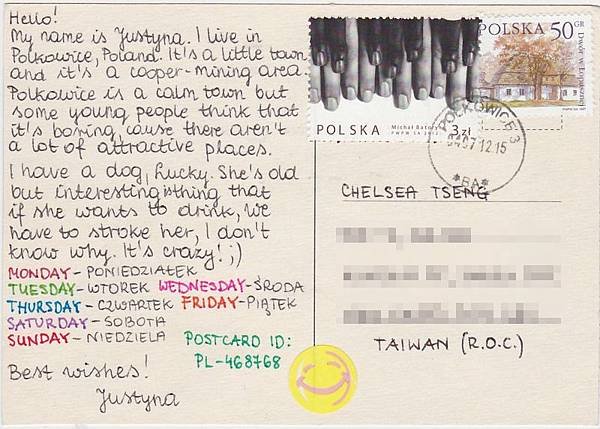 Hello!
My name is Justyna. I live in
Polkowice, Poland. It's a little town
and it's a cooper-mining area.
Polkowice is a calm town but
some young people think that
it's boring, cause there aren't
a lot of attractive places.
I have a dog, Lucky. She's old
but interesting is thing that
if she wants to drink, we
have to stroke her, I don't
know why. It's crazy! ;)
MONDAY - PONIEDZIAŁEK
TUESDAY - WTOREK WEDNESDAY - ŚRODA
THURSDAY - CZWARTEK FRIDAY - PIĄTEK
SATURDAY - SOBOTA
SUNDAY - NIEDZIELA
POSTCARD ID:
PL-468768
Best wishes!
Justyna
POLSKA
Michał Batory
3 zł
POLSKA 50 GR
Dwór w Łopusznej
POLKOWICE 3
0407 12.15
*BA*
CHELSEA TSENG
TAIWAN (R.O.C.)